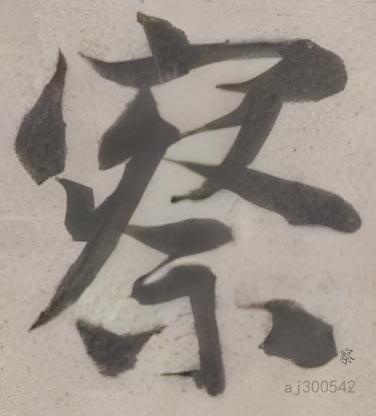 察
察
aj300542